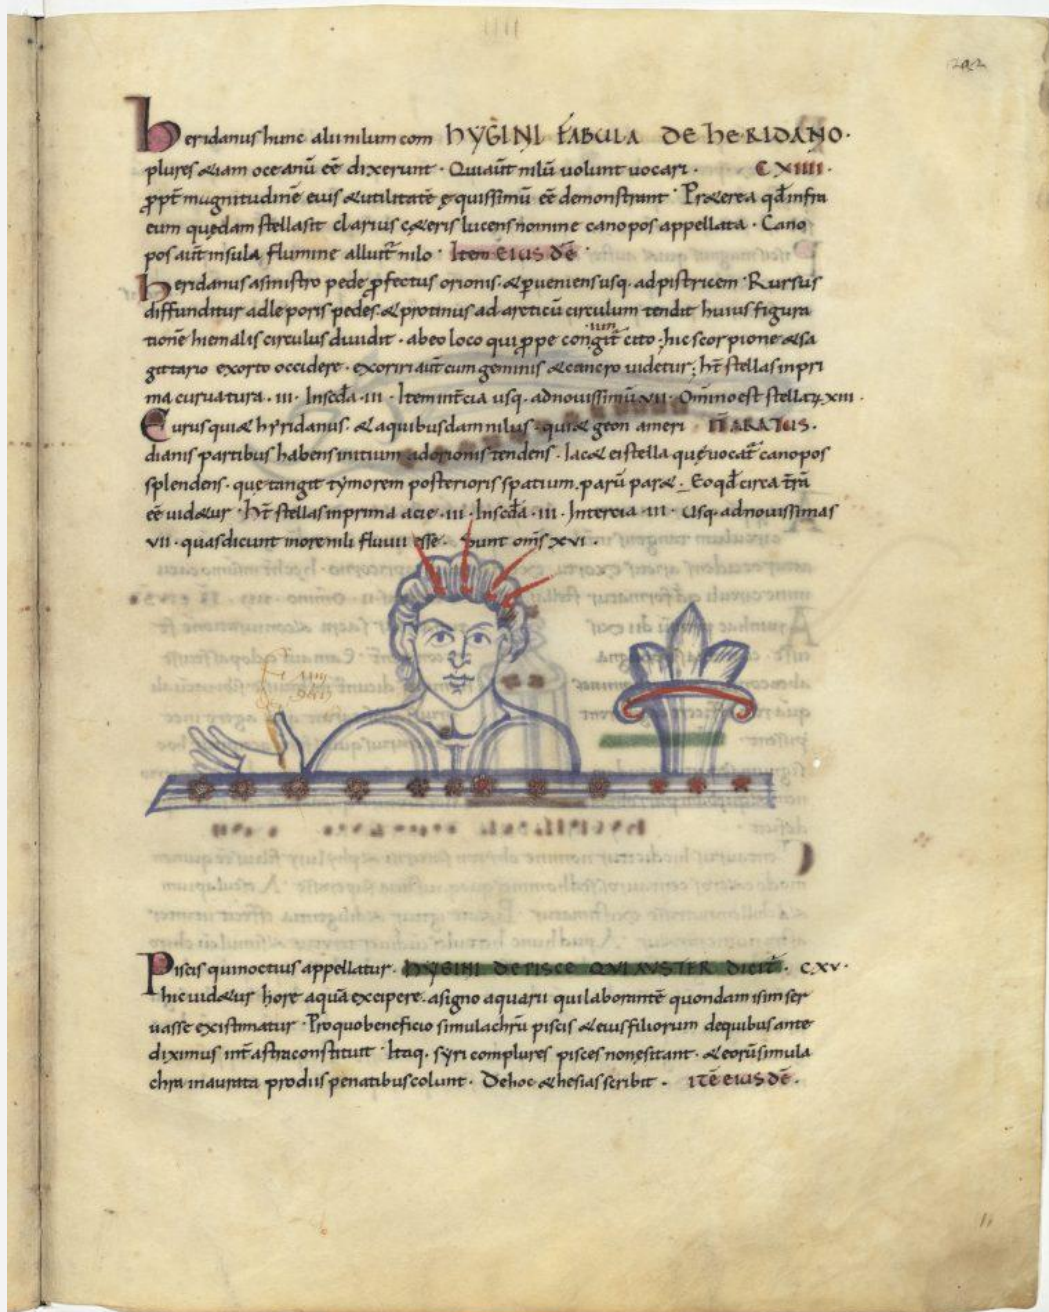 292
heridanus hunc alii nilum com hyGINI FABULA DE heRIDANO·
plures &iam oceanū eē dixerunt · Qui aūt nilū volunt vocari · CXIIII·
ꝓpt̄ magnitudinē eius & utilitatē ęquissimū eē demonstrant · Pr&erea qd̄ infra
eum quędam stella sit clarius c&eris lucens nomine canopos appellata · Cano
pos aūt insula flumine alluit̄ nilo · Item EIUS DĒ ·
heridanus a sinistro pede ꝓfectus orionis · & ꝑveniens usq· ad pistricem · Rursus
diffunditur ad leporis pedes · & protinus ad arcticū circulum tendit huius figura
tionē hiemalis circulus diuidit · ab eo loco qui ꝓpe congit̄ cito · hic scorpione & sa
gittario exorto occidere · exoriri aūt cum geminis & cancro uidetur; ht̄ stellas in pri
ma curuatura · III · In scd̄a · III · Item int̄cia usq· ad novissimū VII · Omīno est stellaꝝ XIII ·
Eurus qui & hyridanus · & a quibusdam nilus · qui & geon a meri ARATUS ·
dianis partibus habens initium ad orionis tendens · Iac& ei stella quę vocat̄ canopos
splendens · que tangit tymorem posterioris spatium · parū par& · Eo qd̄ circa t̄rā
eē uid&ur · ht̄ stellas in prima acie · III · In scd̄a · III · In tercia · III · Usq· ad novissimas
VII · quas dicunt more nili fluuii esse · Sunt om̄s XVI ·
Piscis qui noctius appellatur · hyGINI DE PISCE QUI AUSTER DICIT̄ · CXV·
hic uid&ur hore aquā excipere · a signo aquarii qui laborantē quondam isim ser
uasse existimatur · Pro quo beneficio simulachrū piscis & eius filiorum de quibus ante
diximus int̄ astra constituit · Itaq· syri complures pisces non esitant · & eorū simula
chra inaurata pro diis penatibus colunt · De hoc & hesias scribit · ITĒ EIUS DĒ ·